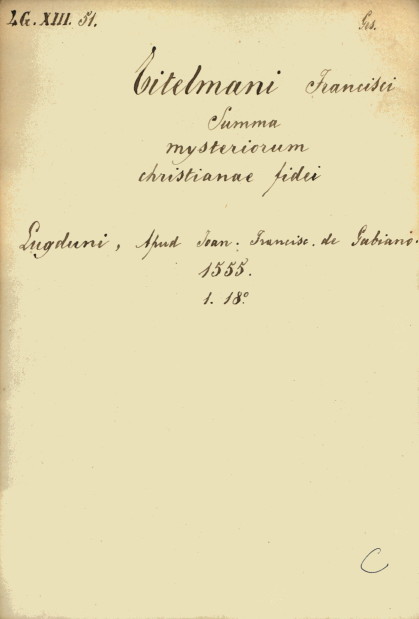 LG. XIII. 51.
Titelmani Francisci
Summa
mysteriorum
christianae fidei
Lugduni, Apud Joan. Francisc. de Gabiano.
1555.
1. 18°
C